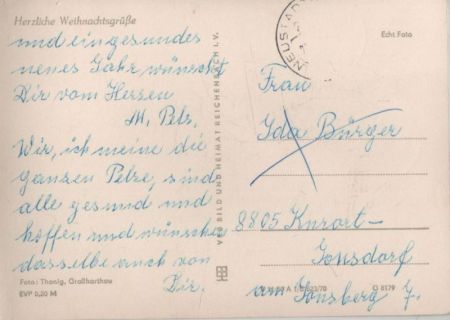 Herzliche Weihnachtsgrüße
und ein gesundes
neues Jahr wünscht
Dir vom Herzen
M. Pelz.
Wir, ich meine die
ganzen Pelze, sind
alle gesund und
hoffen und wünschen
dasselbe auch von
Dir.
Foto: Thonig, Großharthau
EVP 0,20 M
VEB BILD UND HEIMAT REICHENBACH I. V.
NEUSTADT
Echt Foto
Frau
Ida Bürger
8805 Kurort-
Jonsdorf
am Jonsberg 7.